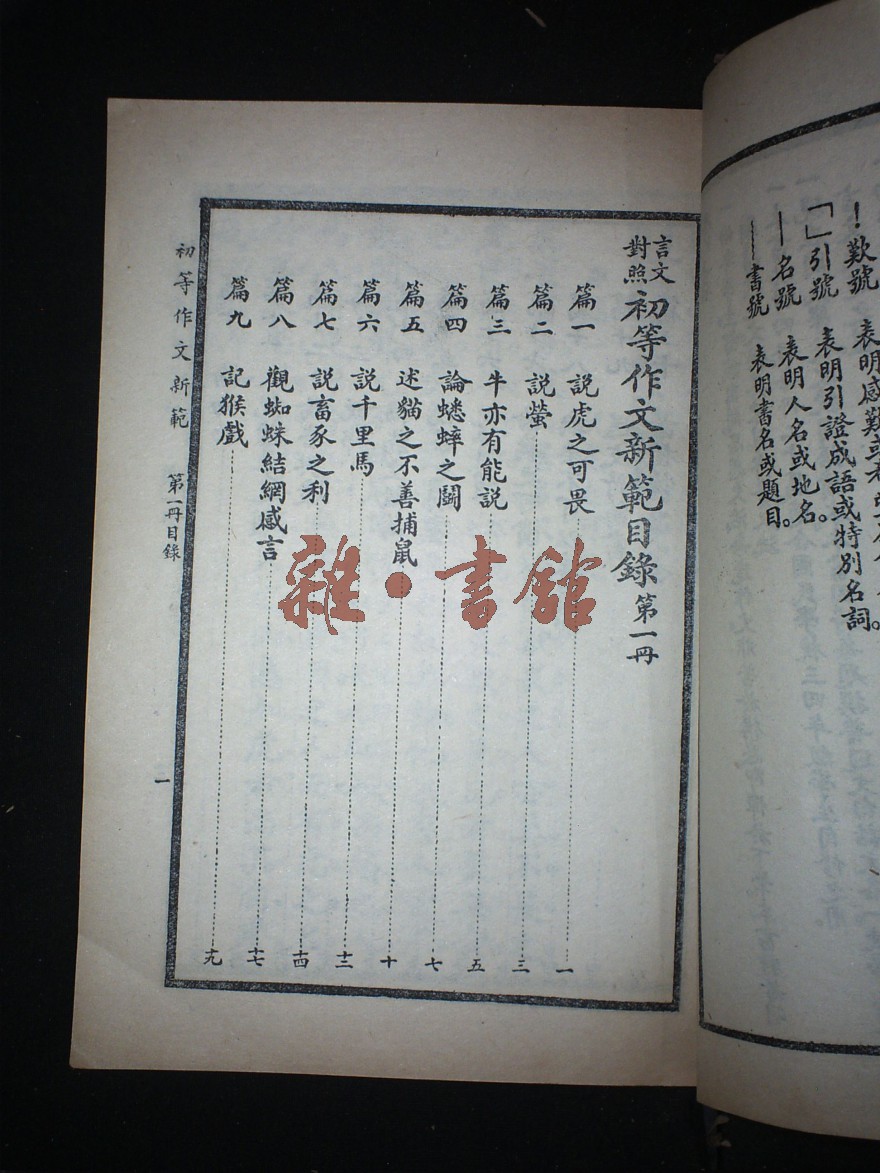 ！歎號　表明感歎或
「」引號　表明引證成語或特別名詞。
—名號　表明人名或地名。
﹏書號　表明書名或題目。
言文對照初等作文新範目錄第一冊
篇一　說虎之可畏……一
篇二　說螢……三
篇三　牛亦有能說……五
篇四　論蟋蟀之鬬……七
篇五　述貓之不善捕鼠……十
篇六　說千里馬……十二
篇七　說畜豕之利……十四
篇八　觀蜘蛛結網感言……十七
篇九　記猴戲……十九
初等作文新範　第一冊目錄
一
雜·書館